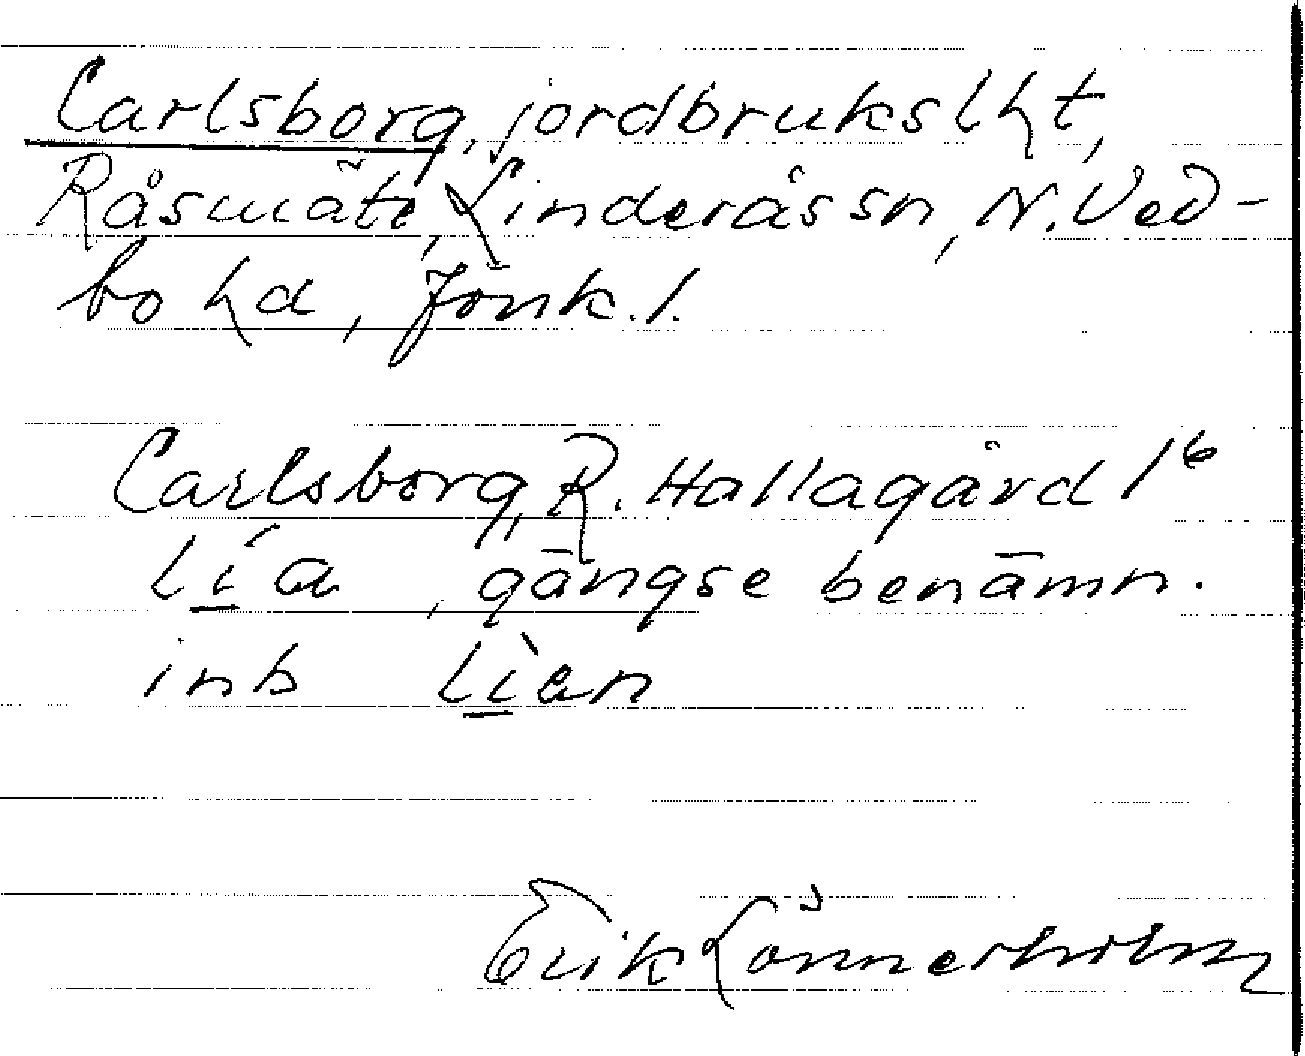 Carlsborg, jordbrukslht,
Råsmäte, Linderås sn, N. Ved-
bo hd, Jönk. l.
Carlsborg, R. Hallagård 1⁶
lía, gängse benämn.
inb lìan
Erik Lönnerholm